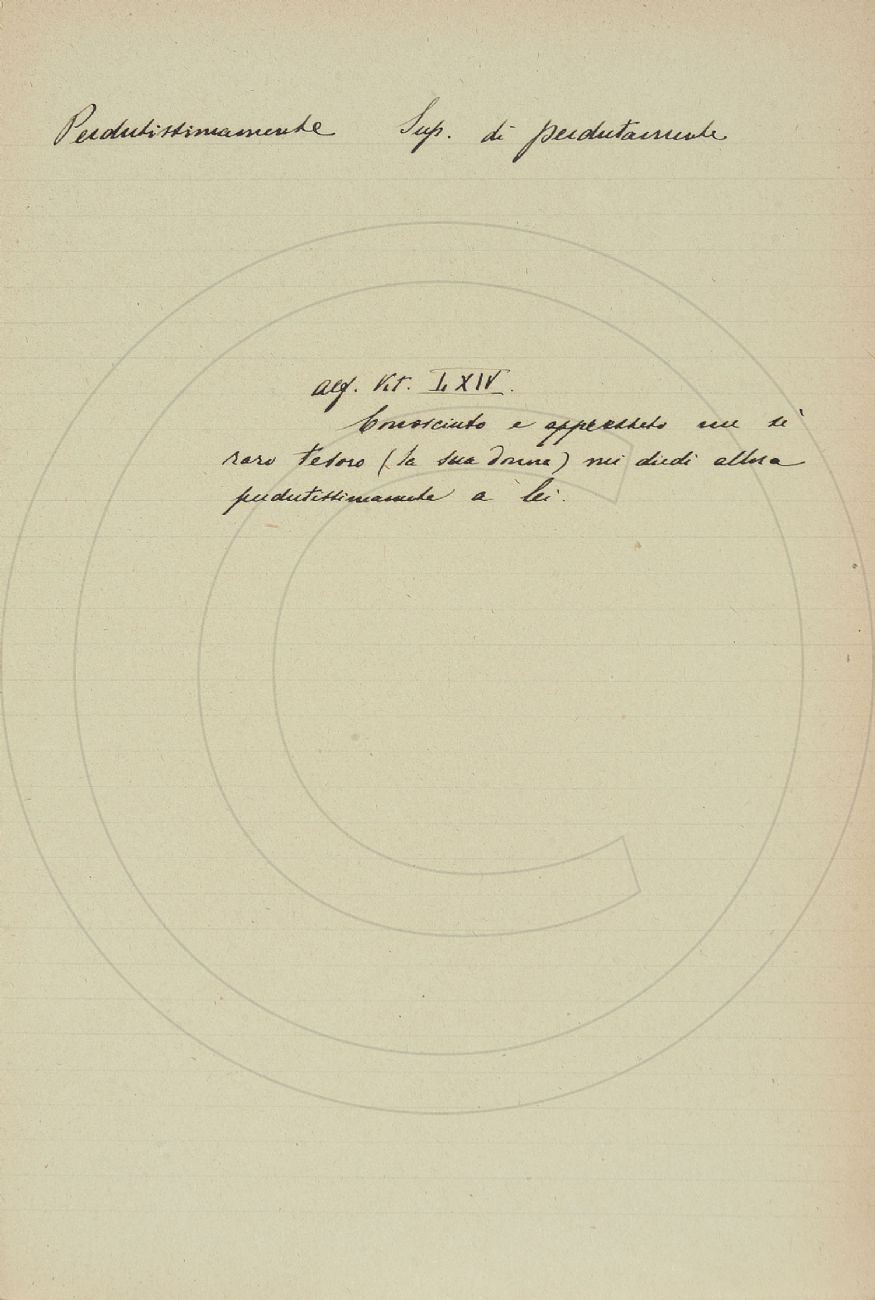 Perdutissimamente Sup. di perdutamente
Alf. Vit. LXIV.
Conosciuto e apprezzato un sì
raro tesoro (la sua donna) mi diedi allora
perdutissimamente a lei.